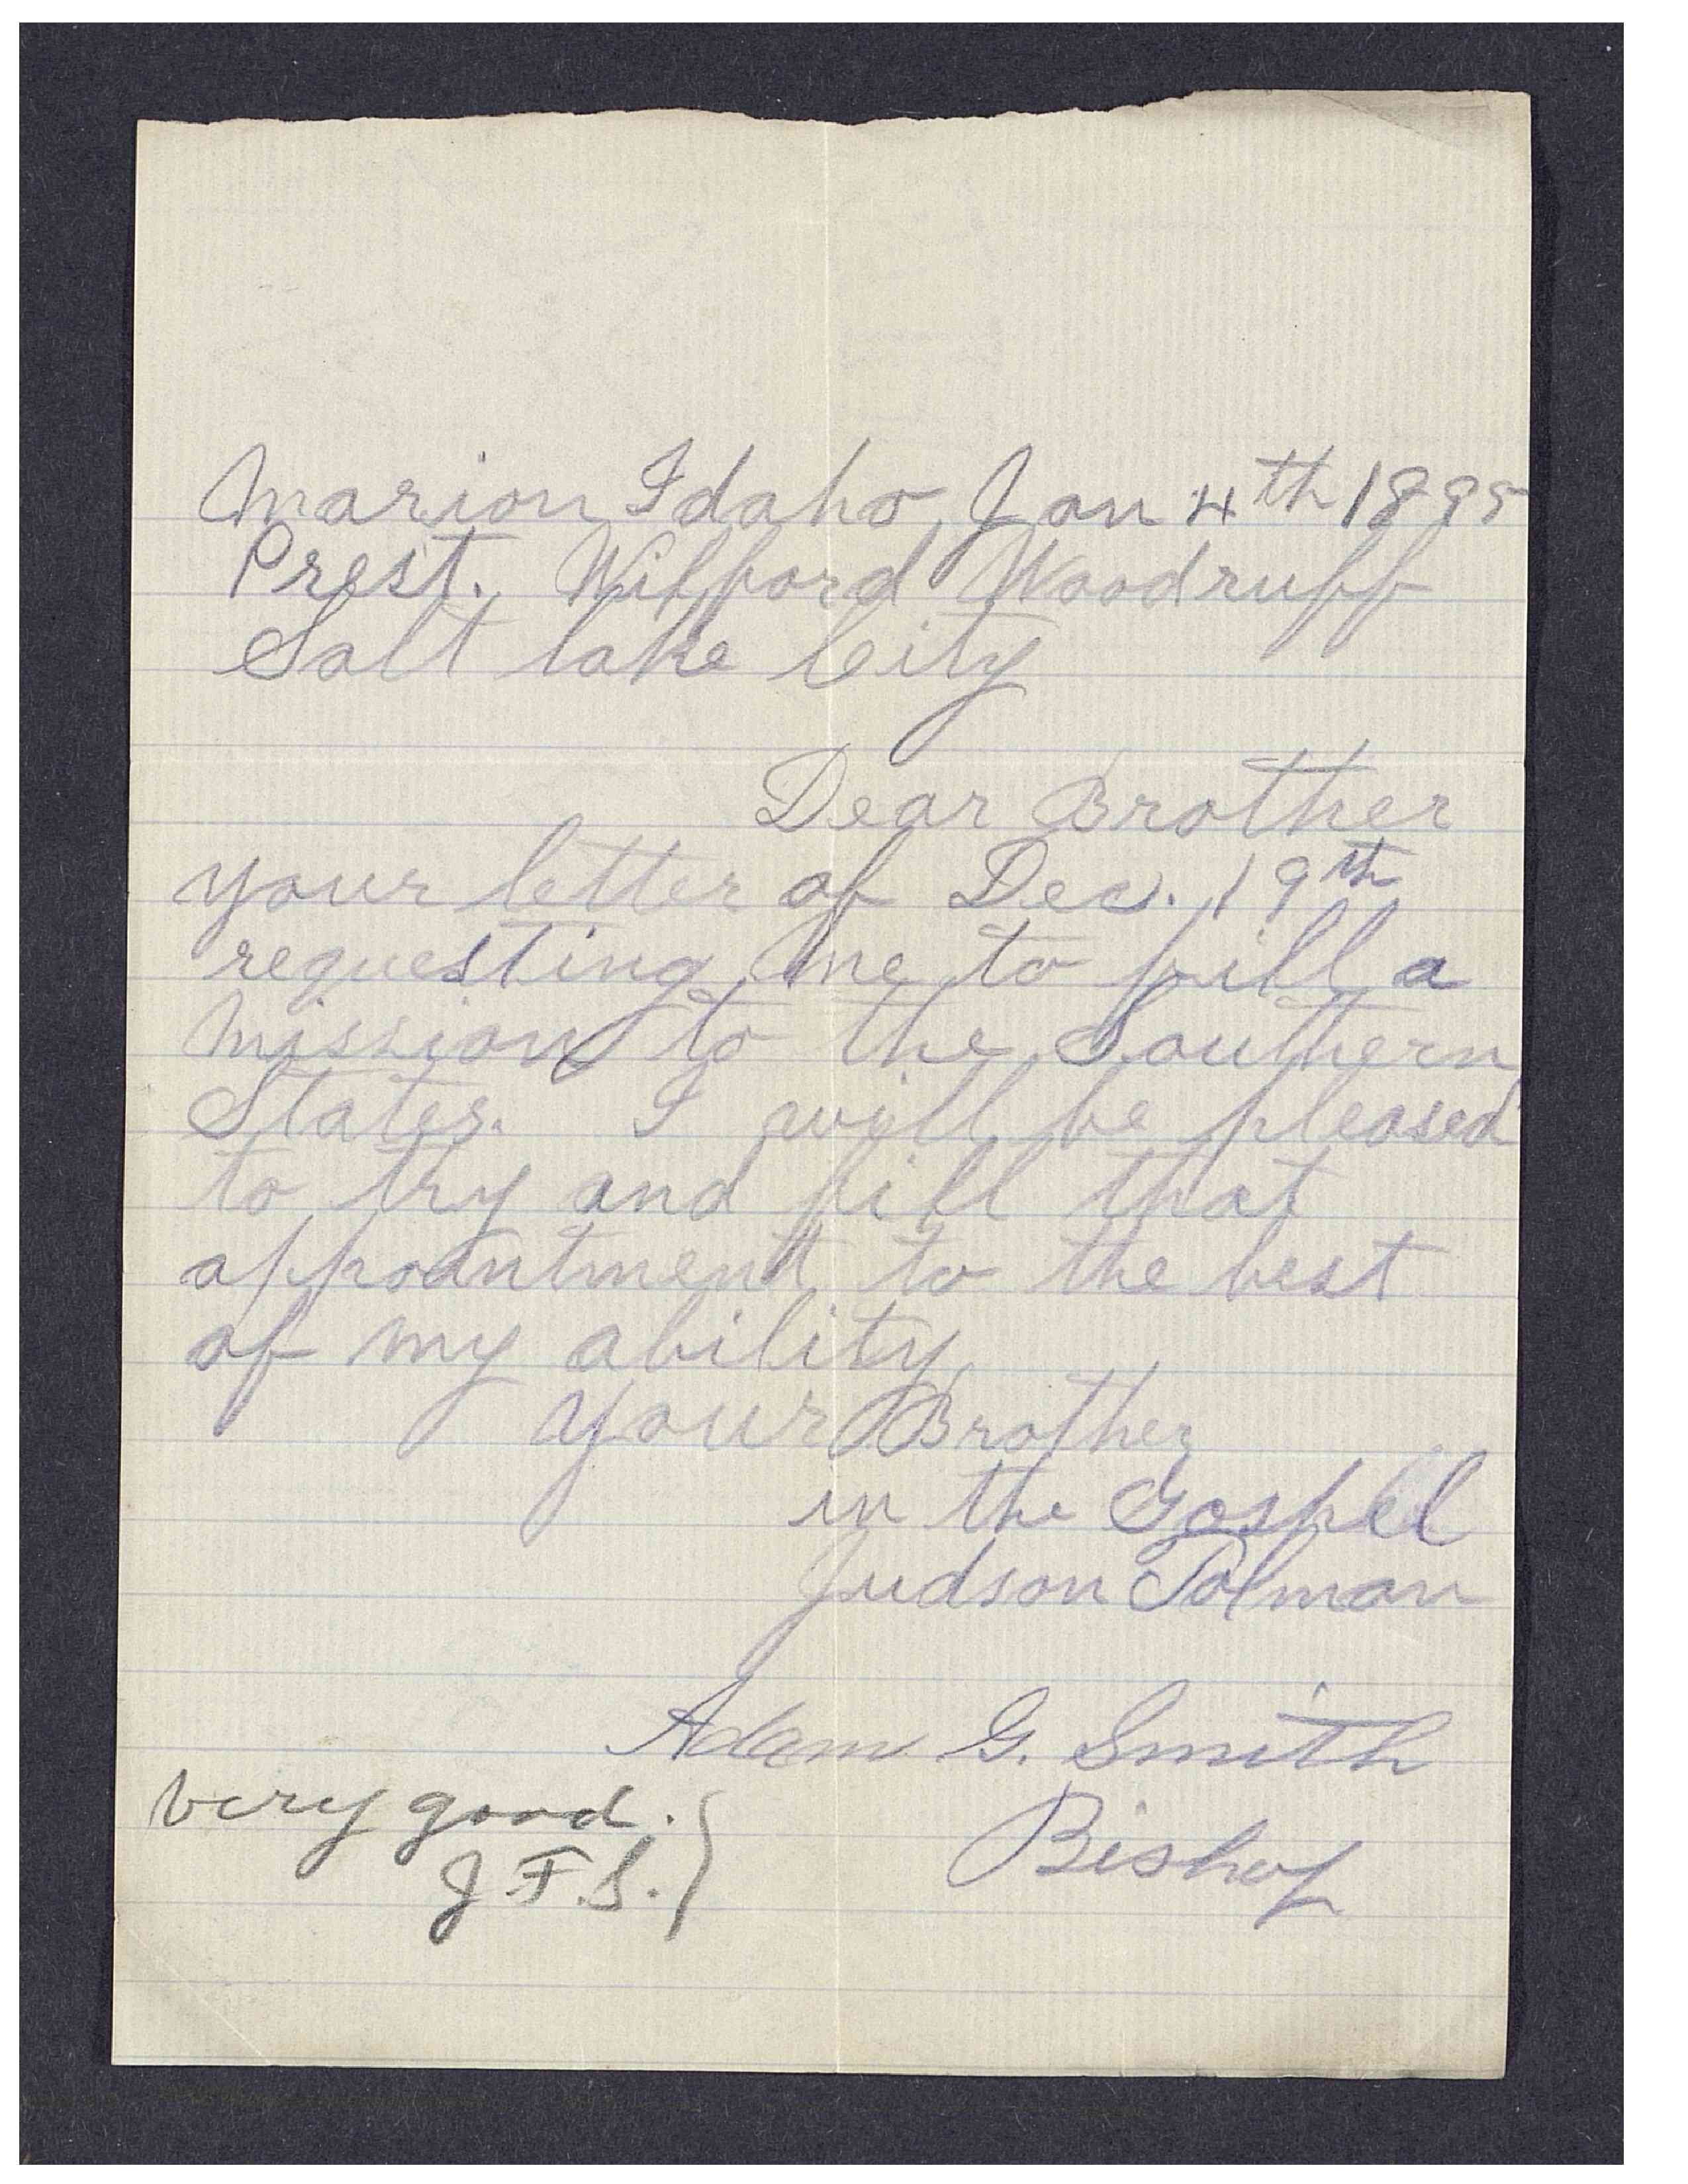 Marion Idaho, Jan 4th 1895
Prest. Wilford Woodruff
Salt lake City
Dear Brother
your letter of Dec. 19th
requesting me to fill a
mission to the Southern
States. I will be pleased
to try and fill that
appointment to the best
of my ability,
your Brother
in the Gospel
Judson Tolman
Adam G. Smith
Bishop
very good.
J. F. S.